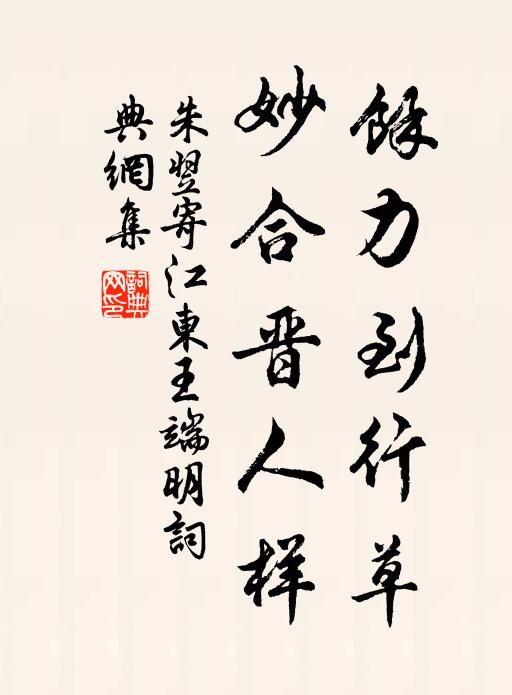 餘力到行草
妙合晉人樣
朱翌寄江東王端明詞
典網集
詞典
网印